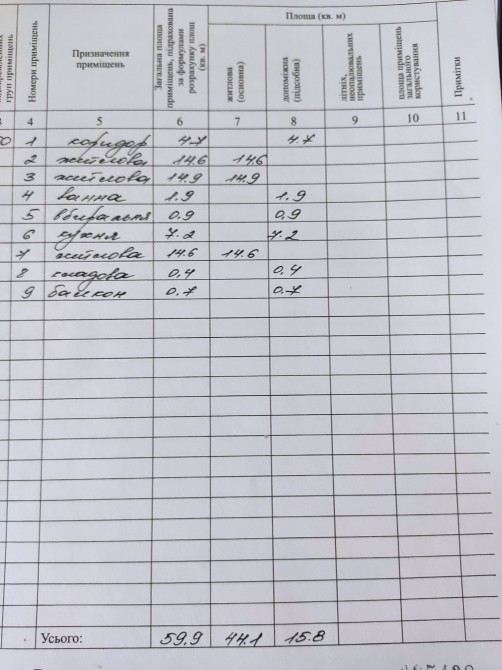 Площа (кв. м)
груп приміщень
Номери приміщень
Призначення приміщень
Загальна площа приміщень, підрахована за формулами розрахунку площ (кв. м)
житлова (основна)
допоміжна (підсобна)
літніх, неопалювальних приміщень
площа приміщень загального користування
Примітки
3 4 5 6 7 8 9 10 11
1 коридор 4.7 4.7
2 житлова 14.6 14.6
3 житлова 14.9 14.9
4 ванна 1.9 1.9
5 вбиральня 0.9 0.9
6 кухня 7.2 7.2
7 житлова 14.6 14.6
8 кладова 0,4 0,4
9 балкон 0.7 0.7
Усього: 59.9 44.1 15.8